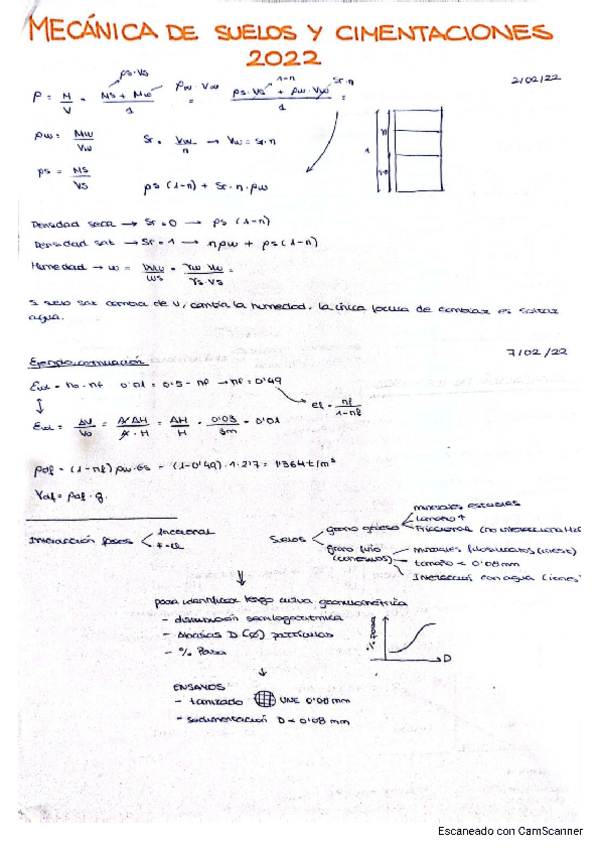 MECÁNICA DE SUELOS Y CIMENTACIONES
2022
2/02/22
ρs·Vs
ρw·Vw
1-n
Sr·n
ρ = M/V = (Ms + Mw)/1 = (ρs·Vs + ρw·Vw)/1 =
ρw = Mw/Vw
Sr = Vw/n → Vw = Sr·n
ρs = Ms/Vs
ρs (1-n) + Sr·n·ρw
Densidad seca → Sr = 0 → ρs (1-n)
Densidad sat → Sr = 1 → nρw + ρs (1-n)
Humedad → w = Ww/Ws = γw·Vw/γs·Vs =
Si suelo sat cambia de V, cambia la humedad, la única forma de cambiar es soltar
agua.
7/02/22
Ejemplo continuación
Evol = no - nf 0'01 = 0'5 - nf → nf = 0'49
ef = nf/1-nf
Evol = ΔV/Vo = A·ΔH/A·H = ΔH/H = 0'03/3m = 0'01
ρdf = (1-nf) ρw·Gs = (1-0'49)·1·2'7 = 1'364 t/m³
γdf = ρdf·g
Interacción fases
friccional
Suelos
grano grueso
minerales estables
tamaño ↑
Friccional (no interacciona H2O
grano fino
(cohesivos)
minerales filosilicatos
tamaño < 0'08 mm
Interacción con agua (iones)
para identificar tengo curva granulométrica
- distribución semilogarítmica
- Abcisas D (Ø) partículas
- % Pasa
% pasa
D
ENSAYOS
- tamizado UNE 0'08 mm
- sedimentación D < 0'08 mm
Escaneado con CamScanner